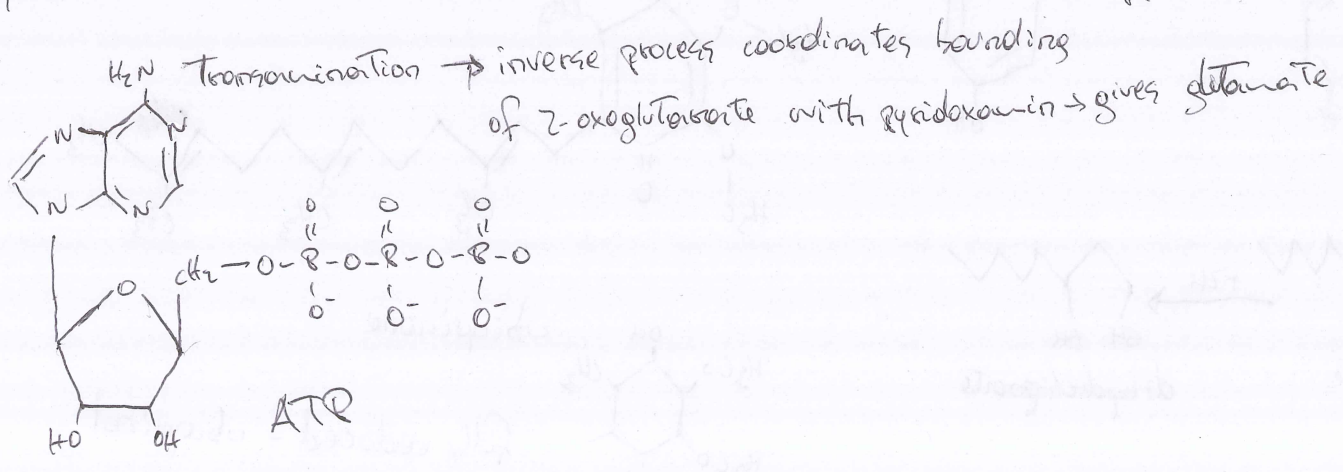 H₂N Transamination → inverse process coordinates bounding
of 2-oxoglutarate with pyridoxamin → gives glutamate
N N
N N
O O O
CH₂ - O - P - O - P - O - P - O
O
O⁻ O⁻ O⁻
ATP
HO OH